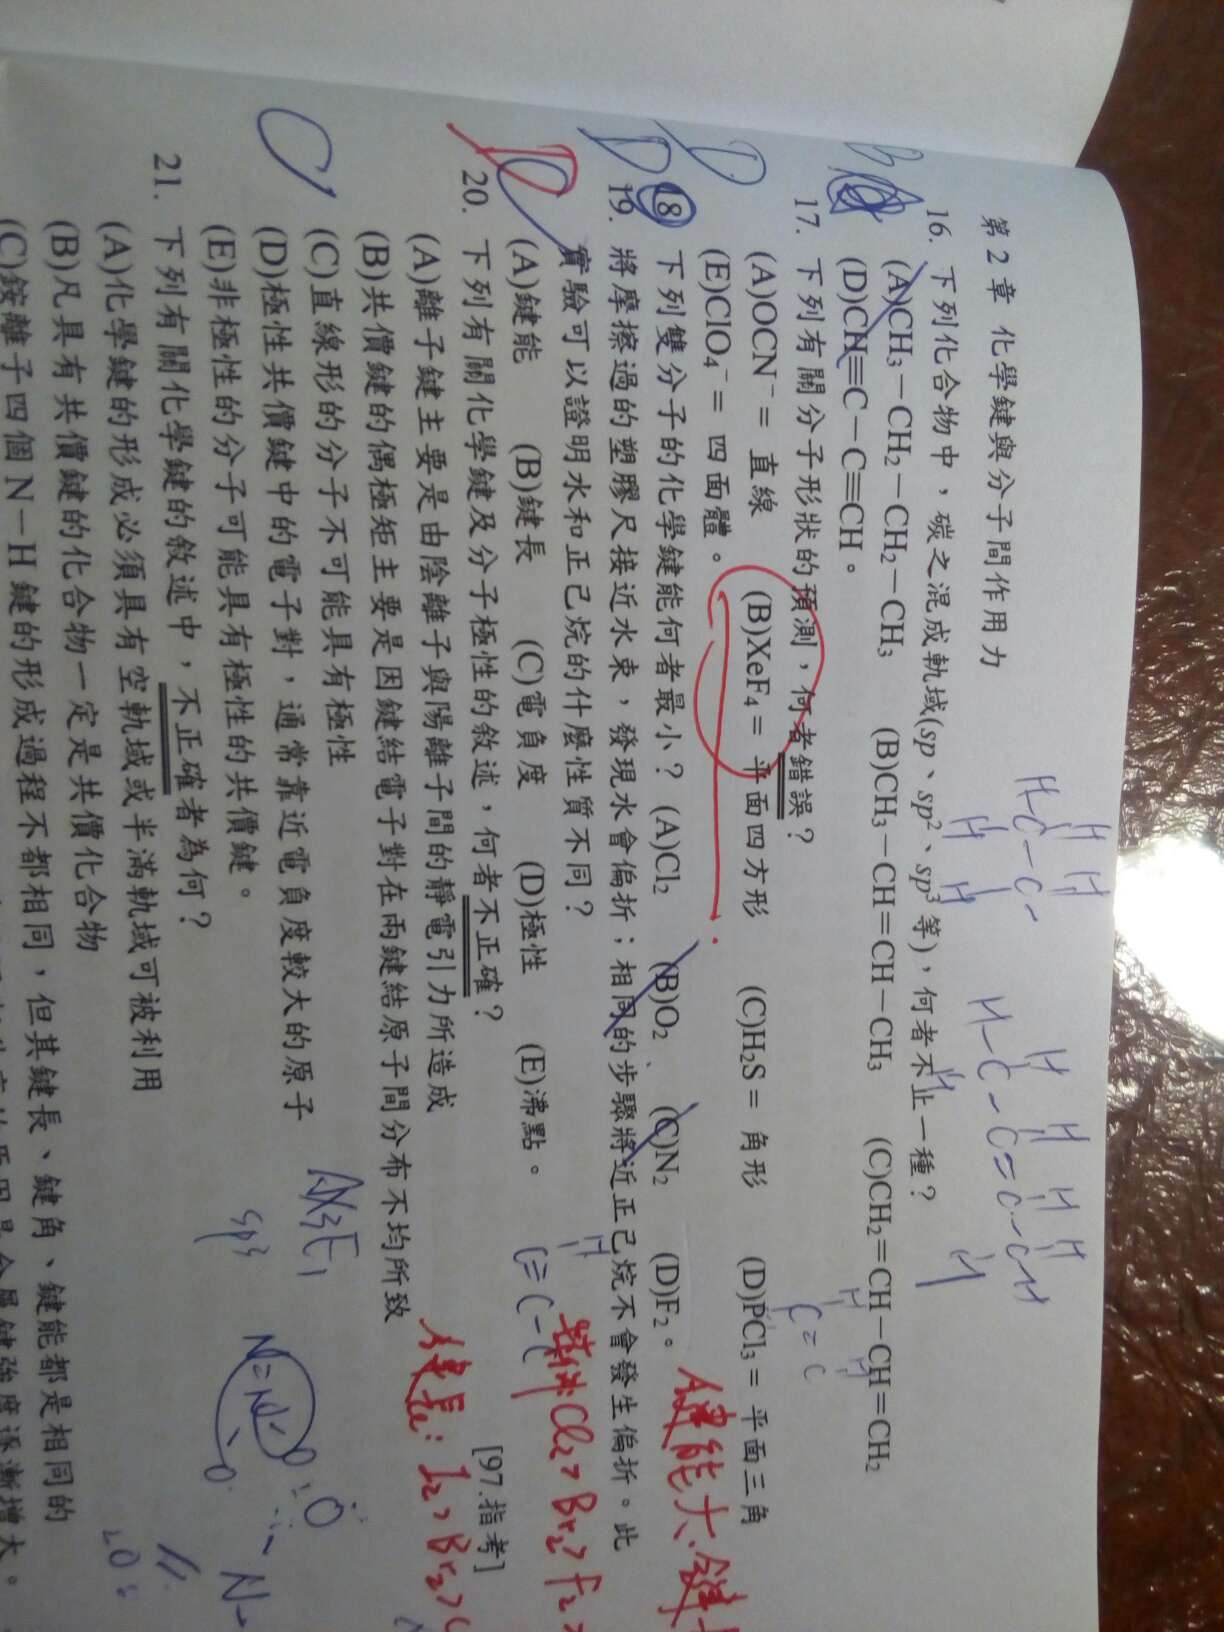 第 2 章 化學鍵與分子間作用力
16. 下列化合物中，碳之混成軌域(sp、sp²、sp³ 等)，何者不止一種？
(A)CH₃－CH₂－CH₂－CH₃ (B)CH₃－CH＝CH－CH₃ (C)CH₂＝CH－CH＝CH₂
(D)CH≡C－C≡CH。
17. 下列有關分子形狀的預測，何者錯誤？
(A)OCN⁻＝ 直線 (B)XeF₄＝ 平面四方形 (C)H₂S＝ 角形 (D)PCl₃＝ 平面三角
(E)ClO₄⁻＝ 四面體。
18. 下列雙分子的化學鍵能何者最小？(A)Cl₂ (B)O₂ (C)N₂ (D)F₂。
19. 將摩擦過的塑膠尺接近水束，發現水會偏折；相同的步驟將近正己烷不會發生偏折。此
實驗可以證明水和正己烷的什麼性質不同？
(A)鍵能 (B)鍵長 (C)電負度 (D)極性 (E)沸點。 [97.指考]
20. 下列有關化學鍵及分子極性的敘述，何者不正確？
(A)離子鍵主要是由陰離子與陽離子間的靜電引力所造成
(B)共價鍵的偶極矩主要是因鍵結電子對在兩鍵結原子間分布不均所致
(C)直線形的分子不可能具有極性
(D)極性共價鍵中的電子對，通常靠近電負度較大的原子
(E)非極性的分子可能具有極性的共價鍵。
21. 下列有關化學鍵的敘述中，不正確者為何？
(A)化學鍵的形成必須具有空軌域或半滿軌域可被利用
(B)凡具有共價鍵的化合物一定是共價化合物
(C)銨離子四個 N－H 鍵的形成過程不都相同，但其鍵長、鍵角、鍵能都是相同的
鍵能大、鍵
Cl₂＞Br₂＞F₂＞
鍵長：I₂＞Br₂＞C
AX₃E₁
sp³